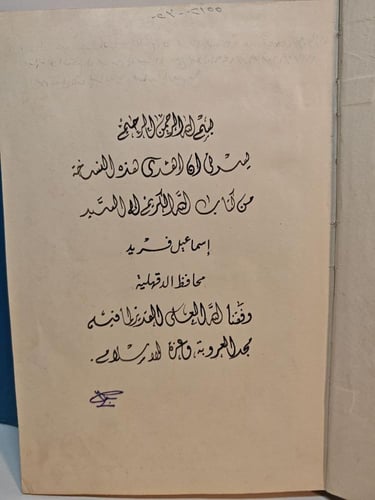 بسم الله الرحمن الرحيم
يسرني ان اهدى هذه النسخة
من كتاب الله الكريم إلى السيد
إسماعيل فريد
محافظ الدقهلية
وفقنا الله العلى القدير لما فيه
مجد العروبة، وعزة الإسلام.